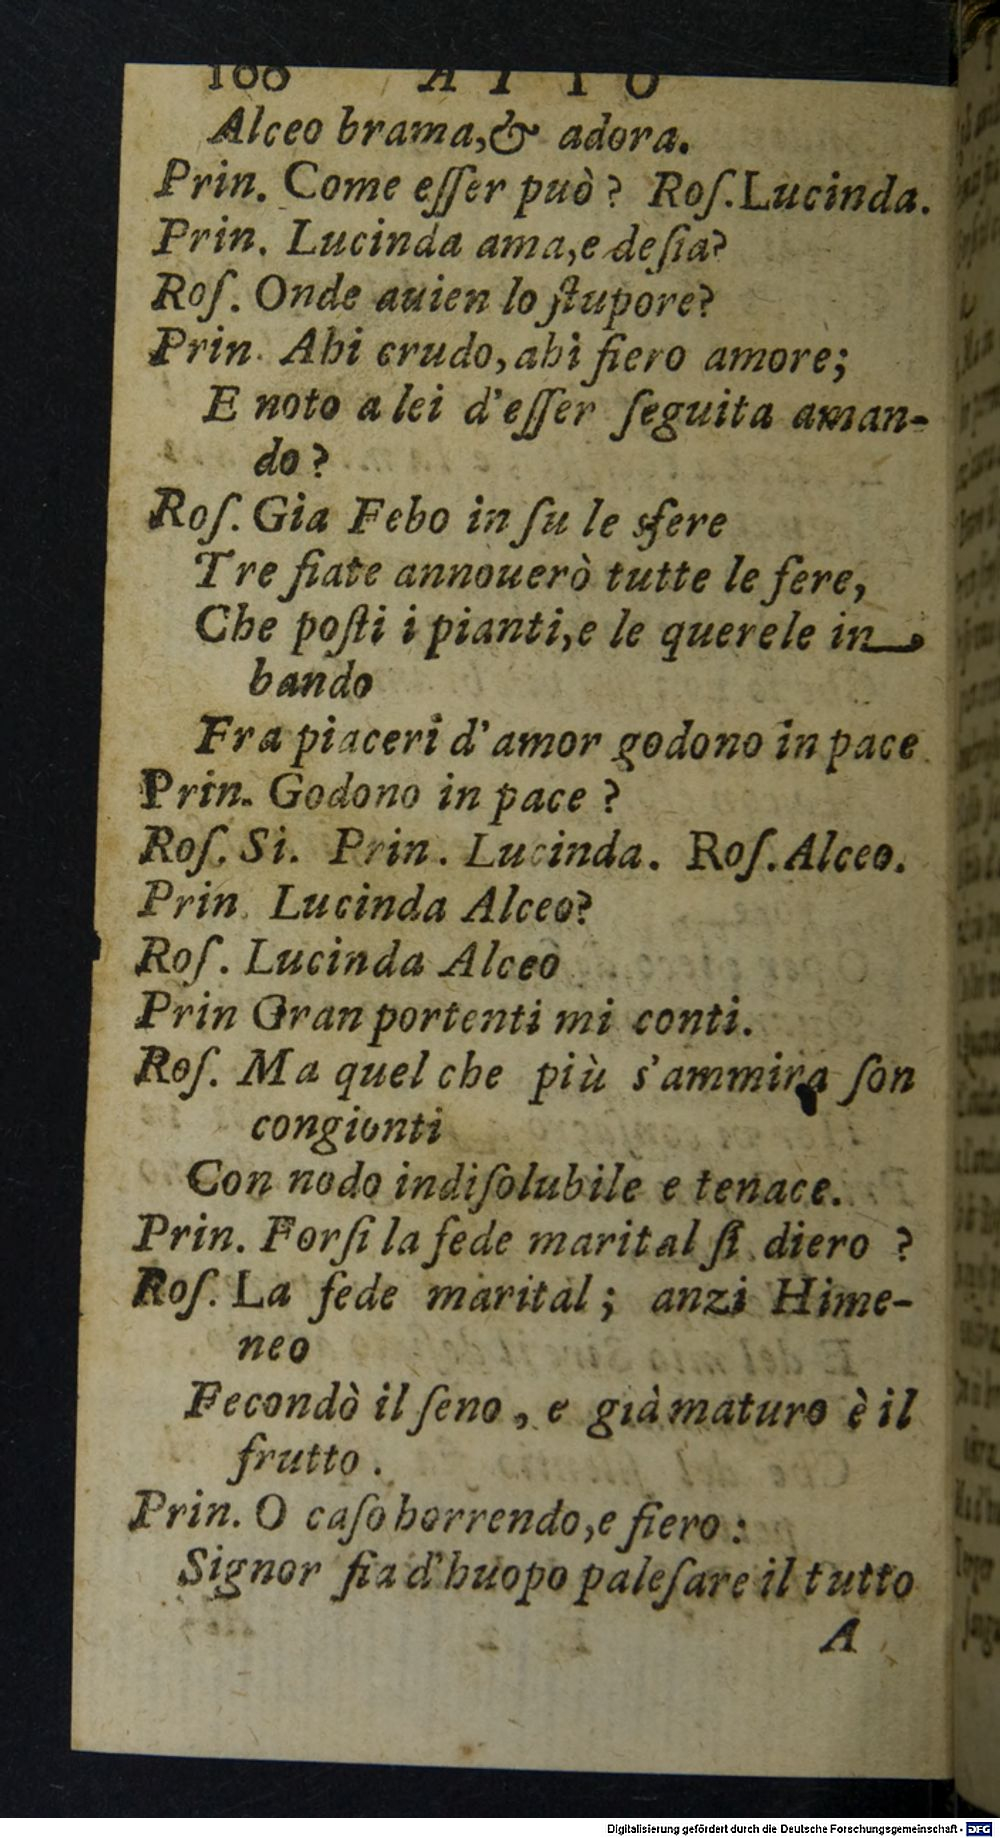 100 ATTO
Alceo brama,& adora.
Prin. Come eſſer può? Roſ. Lucinda.
Prin. Lucinda ama,e deſia?
Roſ. Onde auien lo ſtupore?
Prin. Ahi crudo, ahi fiero amore;
E noto a lei d'eſſer ſeguita aman-
do?
Roſ. Gia Febo in ſu le sfere
Tre fiate annouerò tutte le fere,
Che poſti i pianti,e le querele in
bando
Fra piaceri d'amor godono in pace
Prin. Godono in pace?
Roſ. Si. Prin. Lucinda. Roſ. Alceo.
Prin. Lucinda Alceo?
Roſ. Lucinda Alceo
Prin Gran portenti mi conti.
Roſ. Ma quel che più s'ammira ſon
congionti
Con nodo indiſolubile e tenace.
Prin. Forſi la fede marital ſi diero ?
Roſ. La fede marital; anzi Hime-
neo
Fecondò il ſeno, e già maturo è il
frutto.
Prin. O caſo horrendo,e fiero:
Signor fia d'huopo paleſare il tutto
A
Digitalisierung gefördert durch die Deutsche Forschungsgemeinschaft - DFG